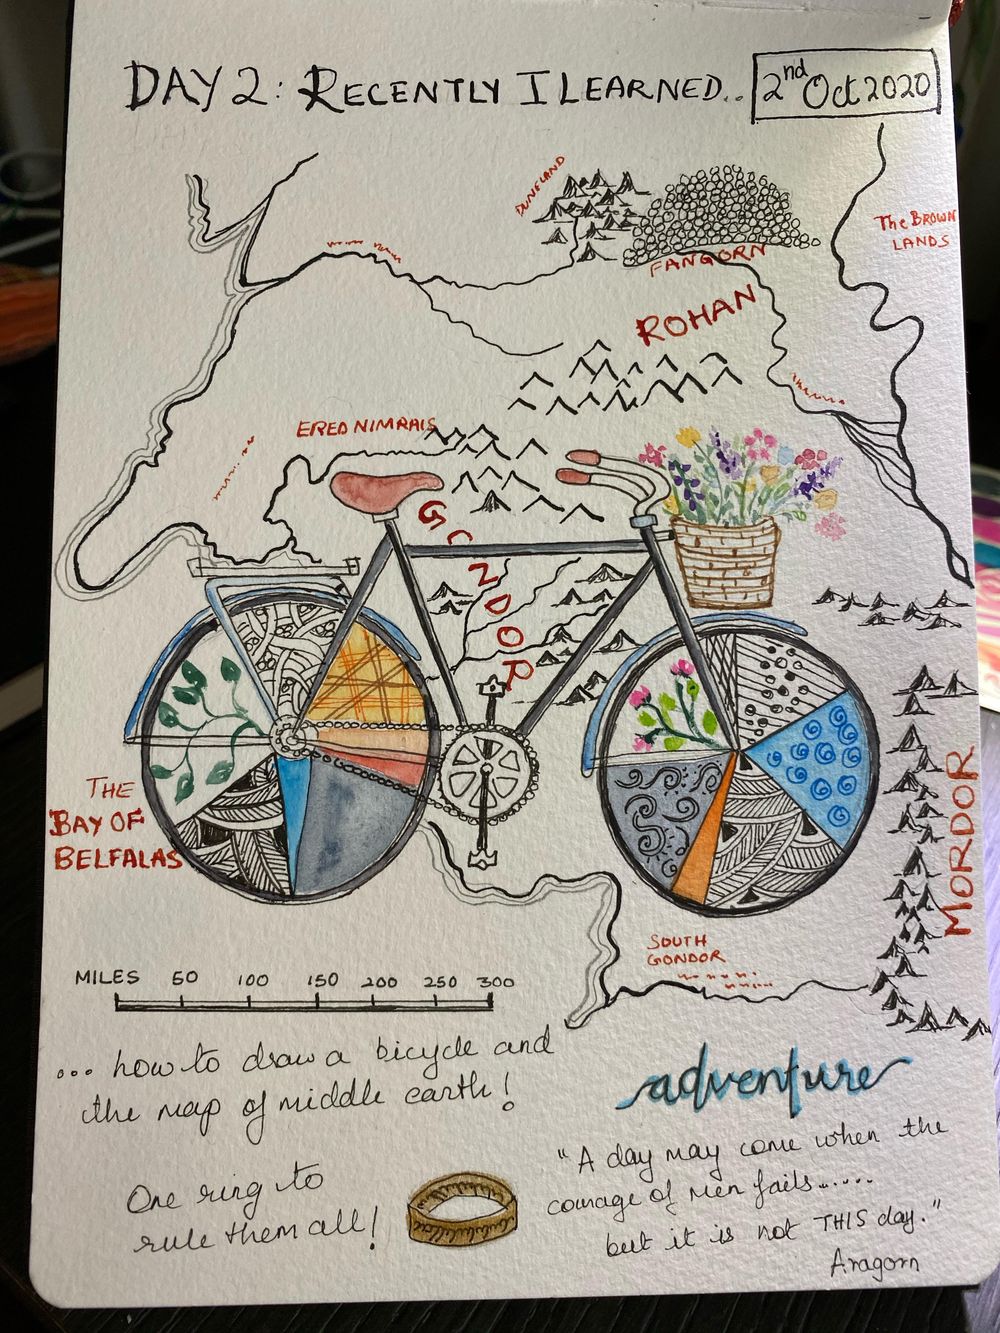 DAY 2: RECENTLY I LEARNED...
2nd Oct 2020
DUNELAND
FANGORN
The BROWN
LANDS
ROHAN
ERED NIMRAIS
GONDOR
THE
BAY OF
BELFALAS
MORDOR
SOUTH
GONDOR
MILES 50 100 150 200 250 300
... how to draw a bicycle and
the map of middle earth!
adventure
One ring to
rule them all!
"A day may come when the
courage of men fails......
but it is not THIS day."
Aragorn